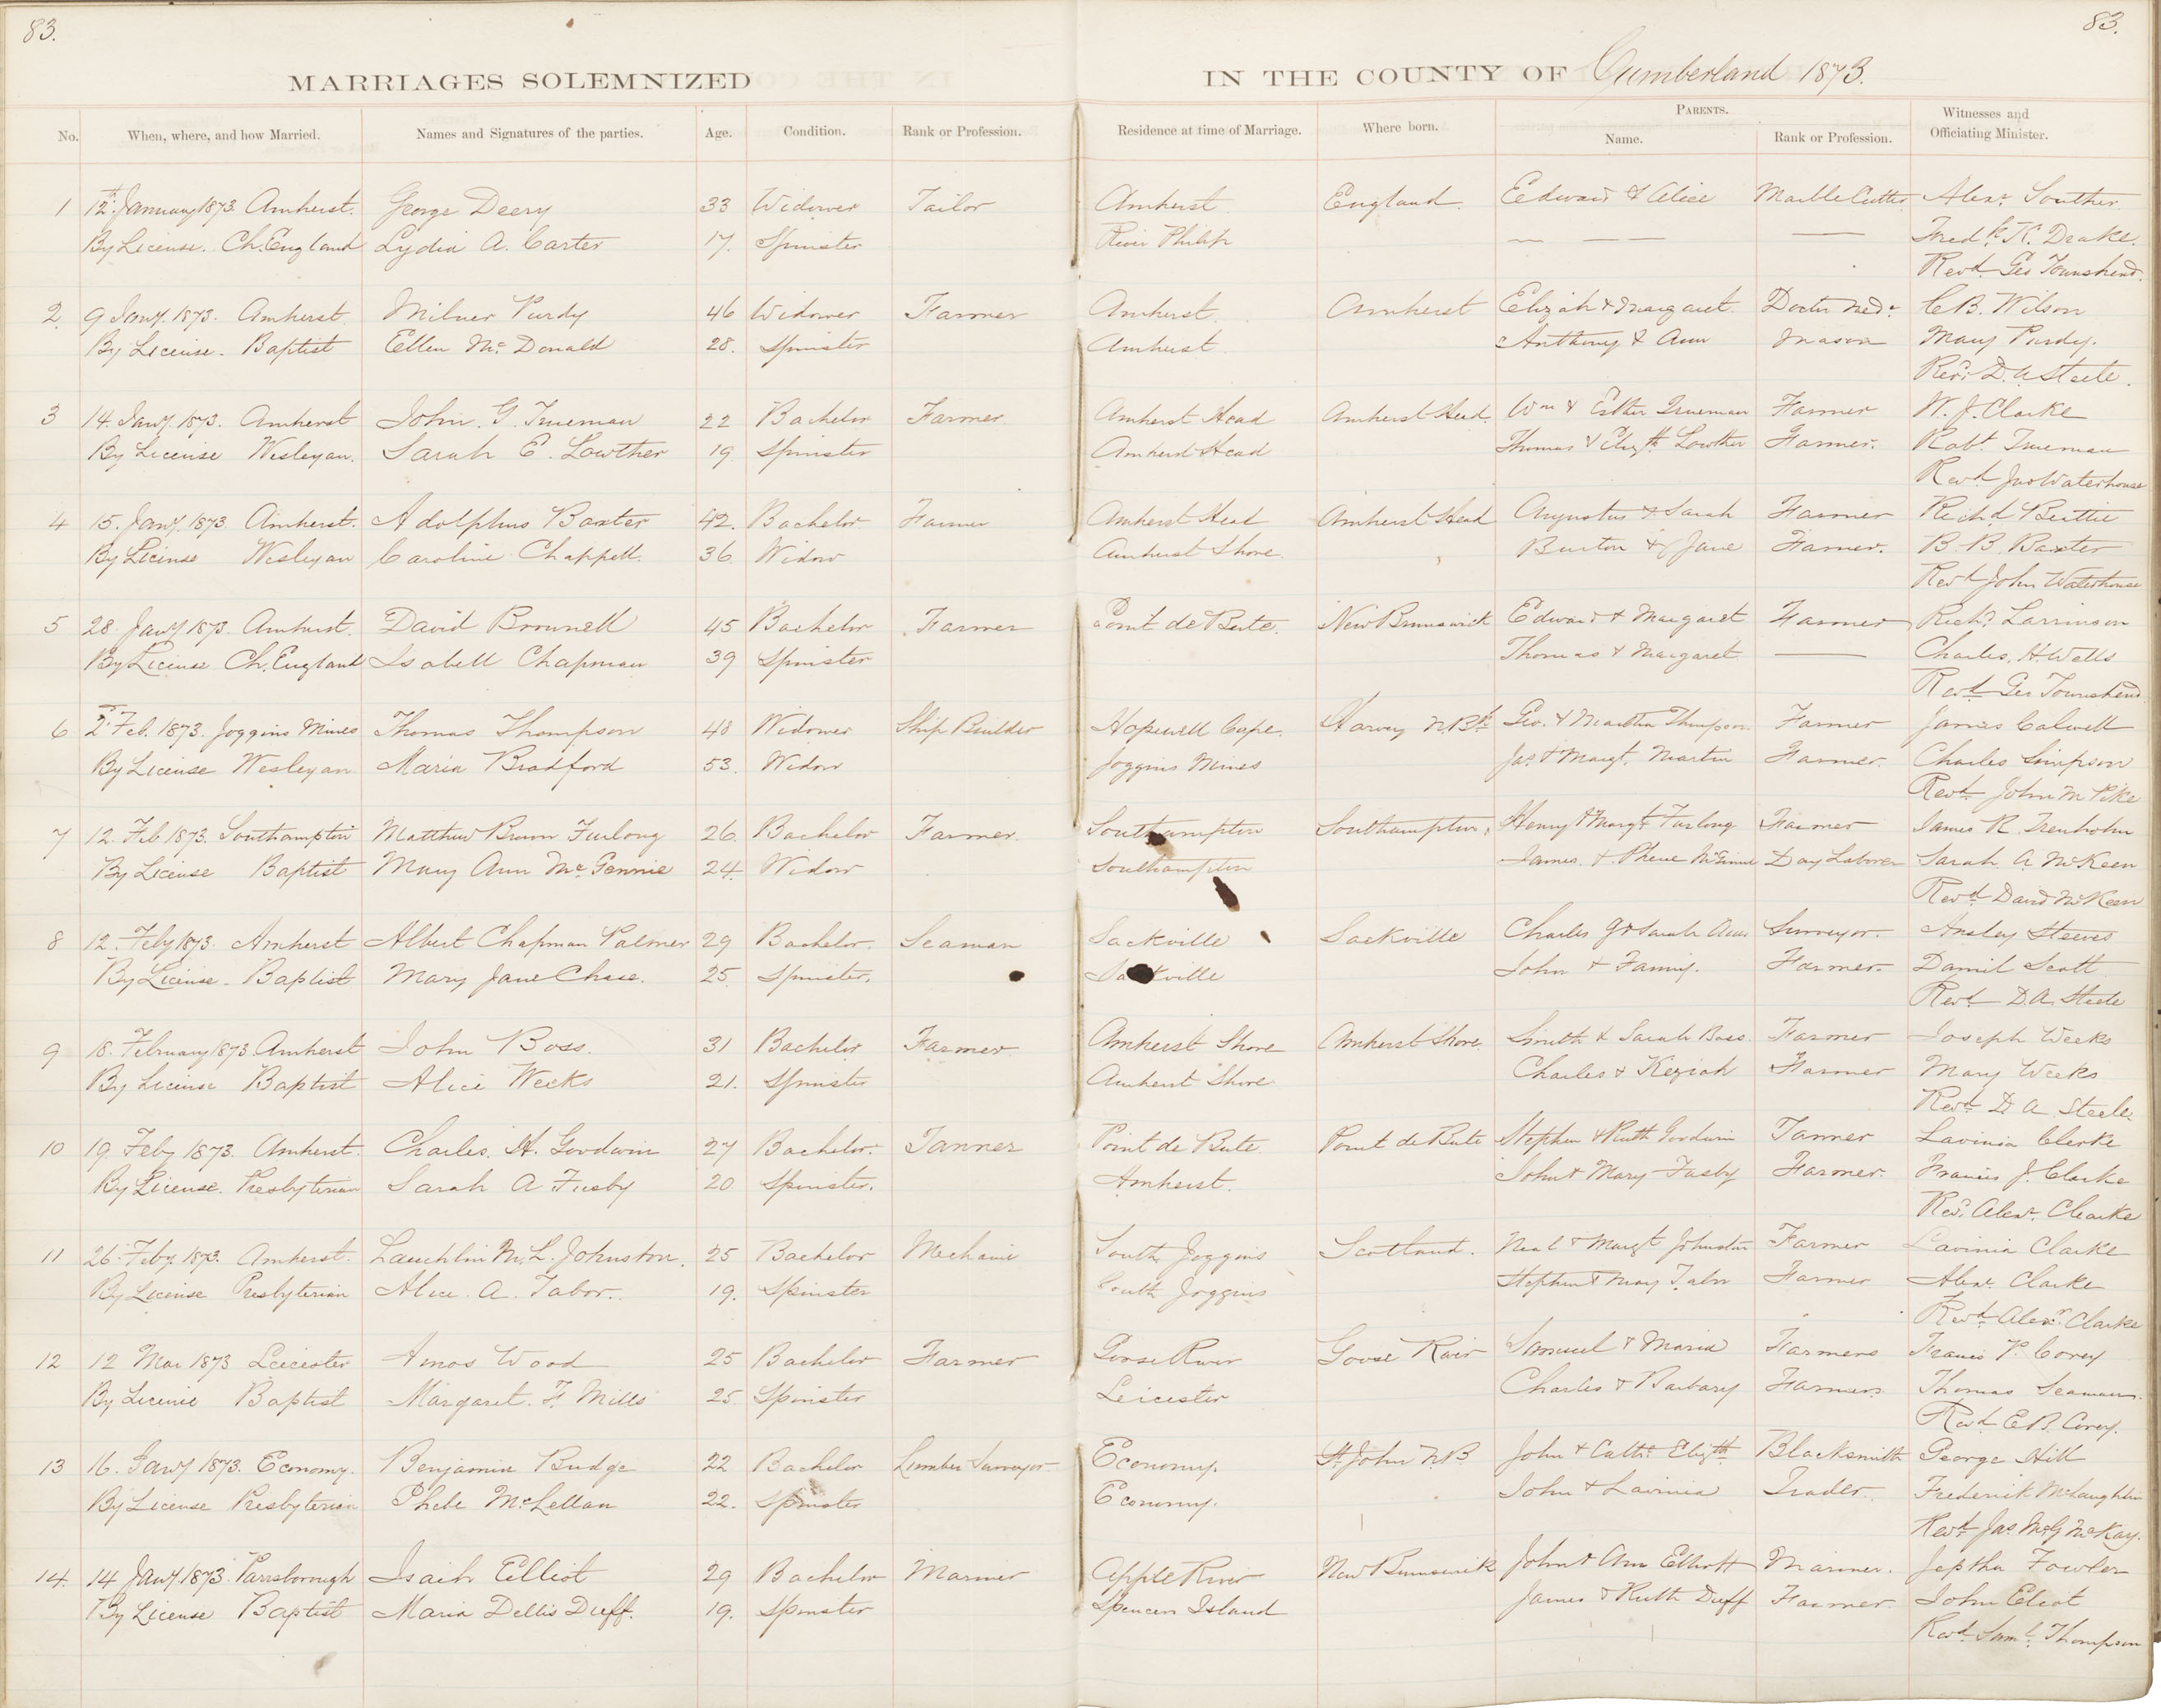 83.
83.
MARRIAGES SOLEMNIZED IN THE COUNTY OF Cumberland 1873.
No. When, where, and how Married. Names and Signatures of the parties. Age. Condition. Rank or Profession. Residence at time of Marriage. Where born. PARENTS. Name. Rank or Profession. Witnesses and Officiating Minister.
1 12th January 1873 Amherst. George Deery 33 Widower Tailor Amherst England. Edward & Alice Marble Cutter Alexr Souther
By License. Ch. England Lydia A. Carter 17. Spinster River Philip — — — Fredk K. Drake.
Revd Geo Townshend.
2 9 Jany. 1873. Amherst. Milner Purdy 46 Widower Farmer Amherst. Amherst Elizah & Margaret Doctor Medr C B. Wilson
By License. Baptist Ellen Mc Donald 28. Spinster Amherst Anthony & Ann Mason Mary Purdy.
Revd D. A. Steele.
3 14. Jany. 1873. Amherst John. G. Trueman 22 Bachelor Farmer Amherst Head Amherst Head. Wm & Esther Trueman Farmer W. J. Clarke
By License Wesleyan. Sarah E. Lowther 19 Spinster Amherst Head Thomas & Elizth Lowther Farmer. Robt. Trueman
Revd Jno Waterhouse
4 15. Jany. 1873 Amherst. Adolphus Baxter 42. Bachelor Farmer Amherst Head Amherst Head Augustus & Sarah Farmer Richd Beittie
By License Wesleyan Caroline Chappell. 36. Widow Amherst Shore. Burton & Jane Farmer. B. B. Baxter
Revd John Waterhouse
5 28. Jany 1873. Amherst. David Brownell 45 Bachelor Farmer Point de Bute. New Brunswick Edward & Margaret Farmer Richd Larrinson
By License Ch. England Isabell Chapman 39 Spinster Thomas & Margaret — Charles. H. Wells
Revd Geo Townshend
6 2d Feb. 1873. Joggins Mines Thomas Thompson 48 Widower Ship Builder Hopewell Cape. Harvey N.Bk Geo. & Martha Thompson Farmer James Calwell
By License Wesleyan Maria Bradford 53. Widow Joggins Mines Jas & Margt. Martin Farmer. Charles Simpson
Revd John M Pike
7 12. Feb 1873. Southampton Matthew Brown Furlong 26. Bachelor Farmer. Southampton Southampton. Henry & Margt Furlong Farmer James R. Trenholm
By License Baptist Mary Ann Mc Gennie 24. Widow Southampton James. & Phene McGinnie Day Laborer Sarah A. McKeen
Revd David McKeen
8 12. Feby 1873. Amherst Albert Chapman Palmer 29 Bachelor. Seaman Sackville Sackville Charles G & Sarah Ann Surveyor. Ansley Steeves
By License. Baptist Mary Jane Chase. 25. Spinster. Sackville John & Fanny. Farmer. Daniel Scott
Revd D. A. Steele
9 18. February 1873. Amherst John Boss. 31 Bachelor Farmer Amherst Shore Amherst Shore Smith & Sarah Boss Farmer Joseph Weeks
By License Baptist Alice Weeks 21. Spinster Amherst Shore Charles & Keziah Farmer Mary Weeks
Revd D. A. Steele
10 19. Feby 1873. Amherst. Charles. H. Goodwin 27 Bachelor. Tanner Point de Bute. Point de Bute Stephen & Ruth Goodwin Tanner Lavinia Clarke
By License. Presbyterian Sarah A Fusby 20 Spinster. Amherst. John & Mary Fusby Farmer. Francis J. Clarke
Revd. Alexr. Clarke
11 26. Feby. 1873. Amherst. Lauchlin M. L. Johnston. 25 Bachelor Mechanic South Joggins Scotland. Neal & Margt Johnston Farmer Lavinia Clarke
By License Presbyterian Alice. A. Tabor.. 19. Spinster South Joggins Stephen & Mary Tabor Farmer Alexr Clarke
Revd Alexr. Clarke
12 12 Mar 1873 Leicester Amos Wood 25 Bachelor Farmer Goose River Goose River Samuel & Maria Farmers Francis P. Corey
By License Baptist Margaret. F. Mills 25. Spinster Leicester Charles & Barbary Farmers Thomas Seamans.
Revd E B. Corey.
13 16. Jany 1873. Economy. Benjamin Budge 22 Bachelor Lumber Surveyor Economy. St. John N.B. John & Cathr. Elizth Blacksmith George Hill
By License Presbyterian Phebe McLellan 22. Spinster Economy. John & Lavinia Trader. Frederick McLaughlin
Revd Jas McG McKay.
14. 14 Jany. 1873. Parrsborough Isaih Elliot 29 Bachelor Mariner Apple River New Brunswick John & Ann Elliott Mariner. Jeptha Fowler
By License Baptist Maria Dellis Duff. 19. Spinster Spencers Island James & Ruth Duff Farmer. John Eliot
Revd Saml. Thompson